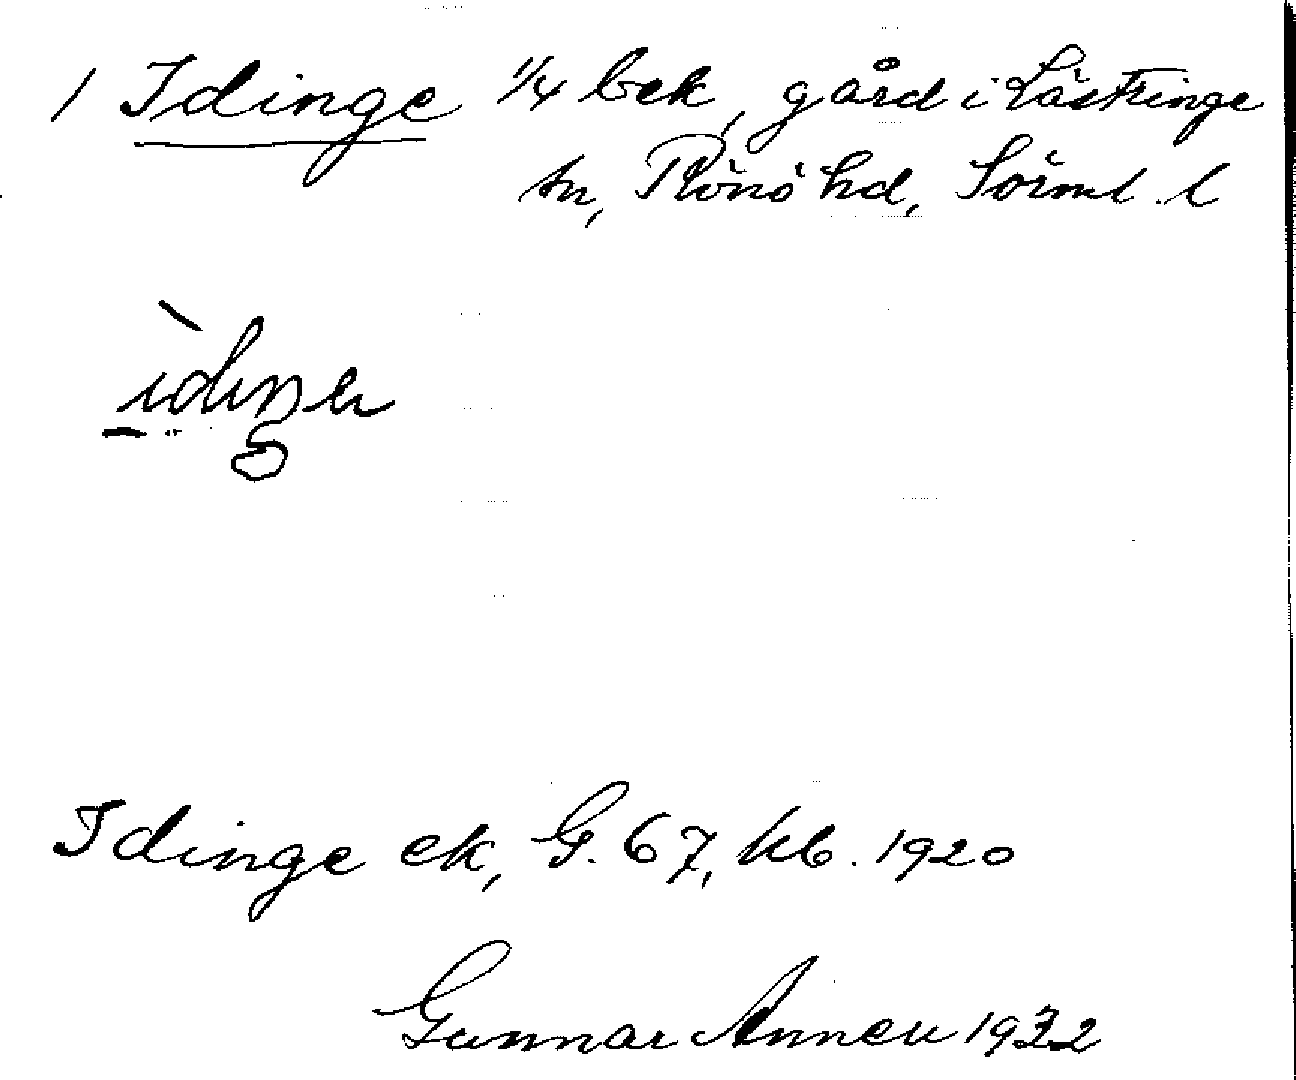 1 Idinge 1/4 bek, gård i Lästringe
sn, Rönö hd, Sörml. l
Idinge ek, G. 67, kb. 1920
Gunnar Annell 1932